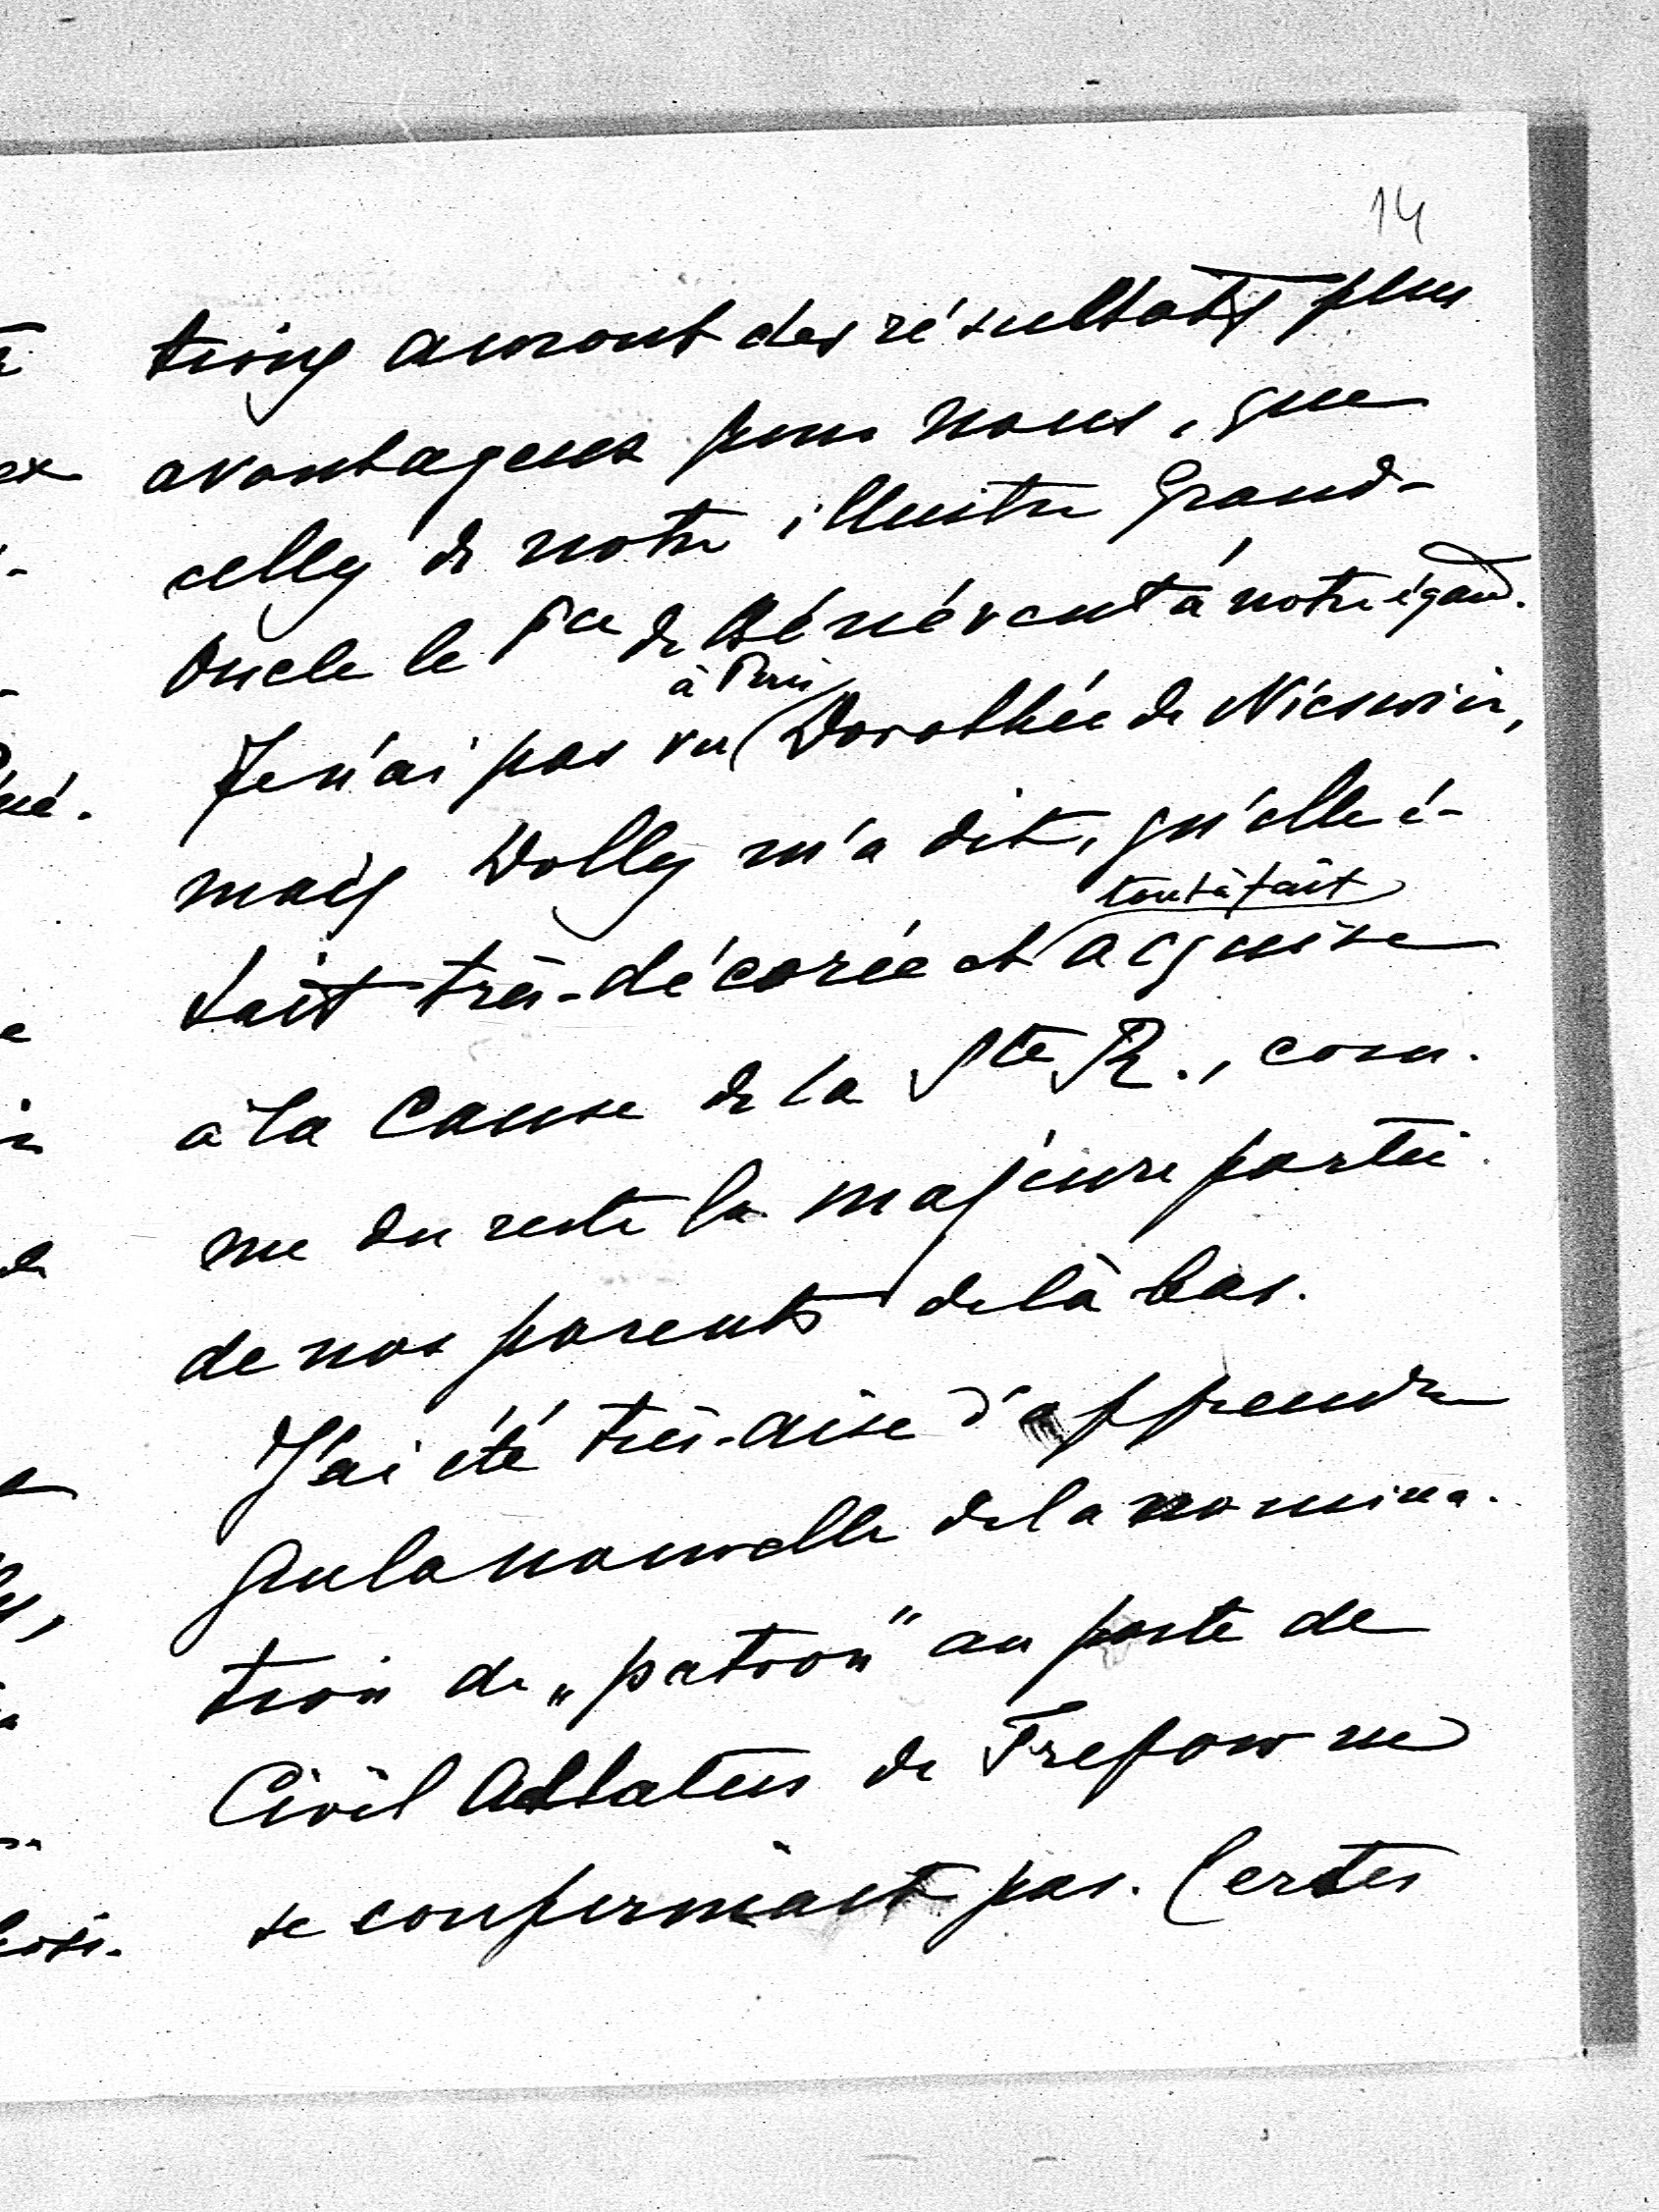 14
tions auront des résultats plus
avantageux pour nous, que
celles de notre illustre Grand-
Oncle le Pce de Bénévent à notre égard.
à Paris
Je n'ai pas vu Dorothée de Nieswiez,
mais Dolly m'a dit, qu'elle é-
tout à fait
tait très-décorée et acquise
à la Cause de la Ste R., com-
me du reste la majeure partie
de nos parents de là bas.
J'ai été très-aise d'apprendre
que la nouvelle de la nomina-
tion de „patron" au poste de
Civil Adlatus de Trepow ne
se confirmait pas. Certes